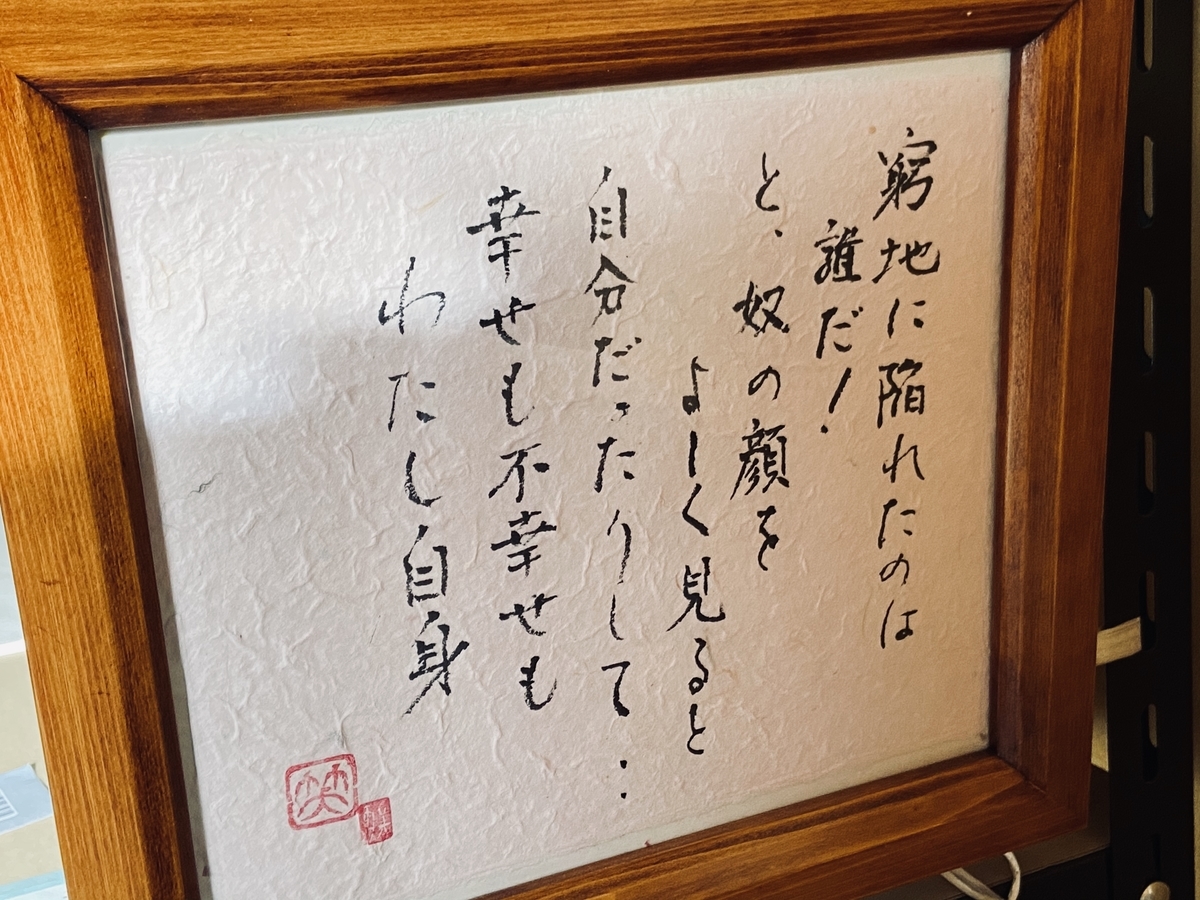 窮地に陥れたのは
誰だ！
と、奴の顔を
よーく見ると
自分だったりして・・
幸せも不幸せも
わたし自身
笑